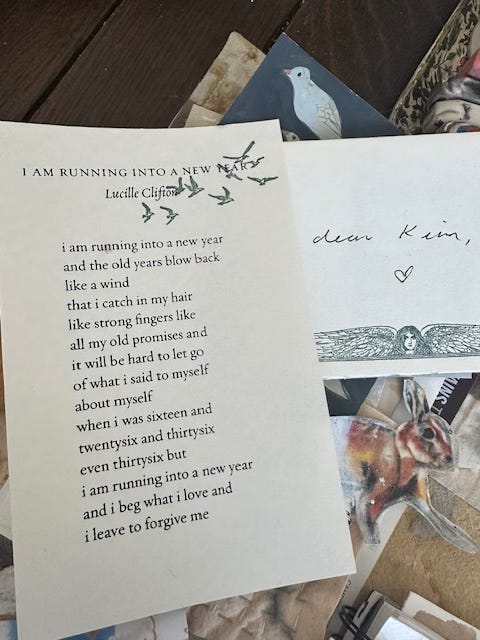 I AM RUNNING INTO A NEW YEAR
Lucille Clifton
i am running into a new year
and the old years blow back
like a wind
that i catch in my hair
like strong fingers like
all my old promises and
it will be hard to let go
of what i said to myself
about myself
when i was sixteen and
twentysix and thirtysix
even thirtysix but
i am running into a new year
and i beg what i love and
i leave to forgive me
dear Kim,